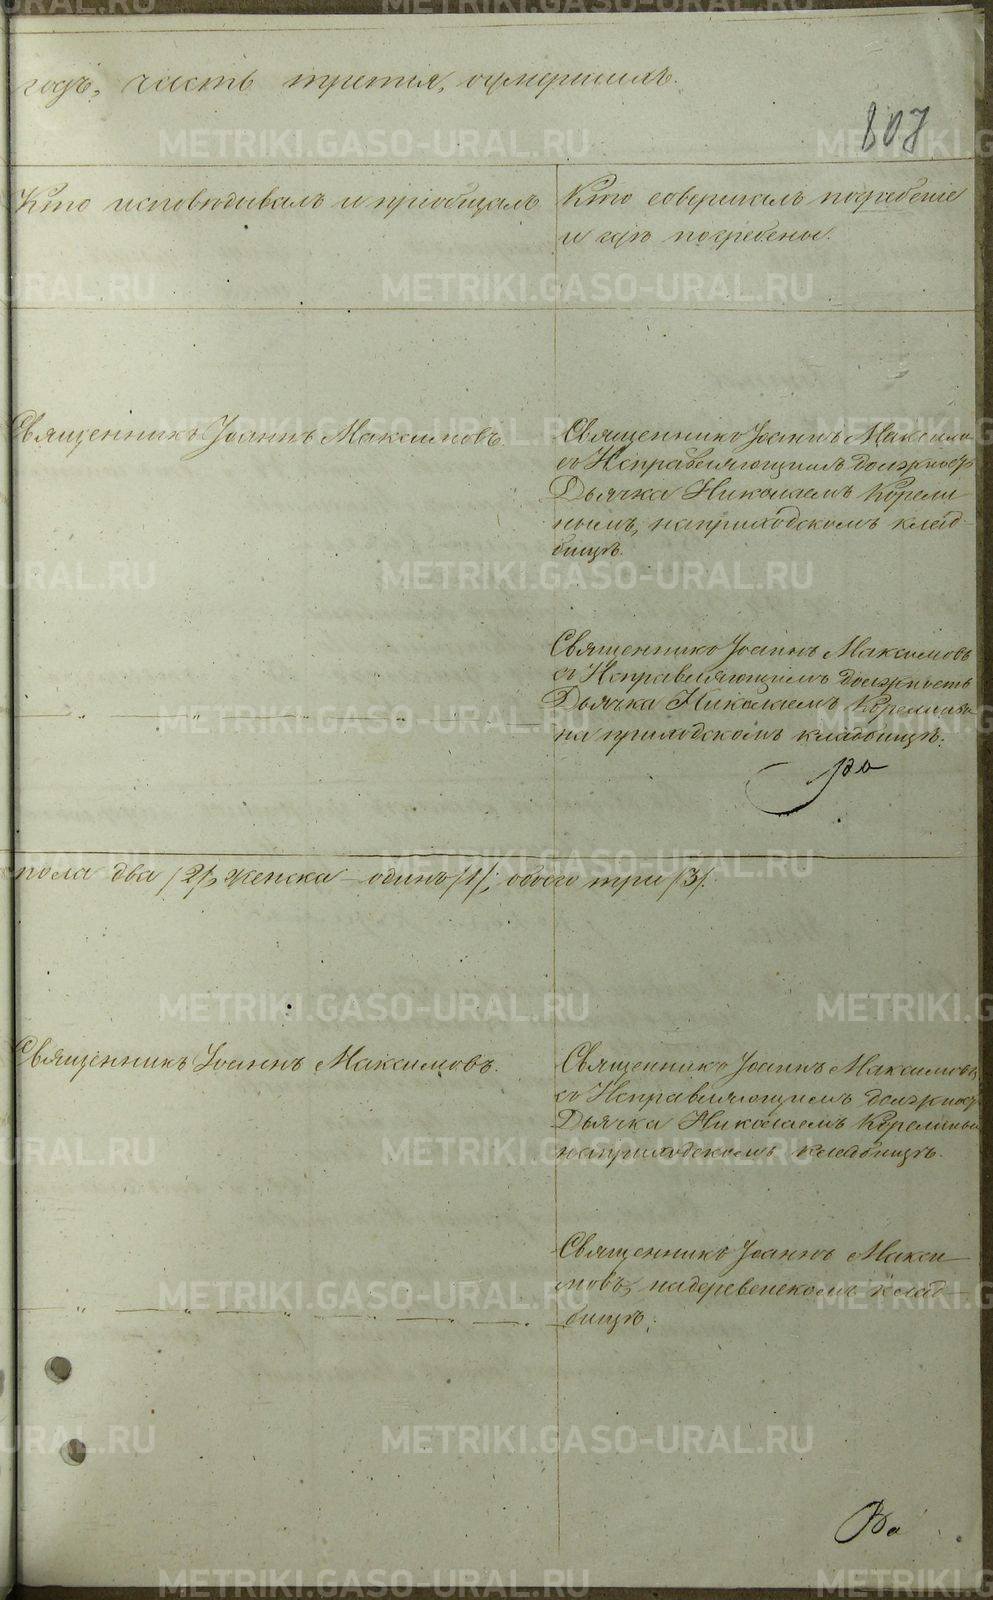 годъ, часть третья, оумершихъ.
807
Кто исповѣдывалъ и пріобщалъ
Кто совершалъ погребеніе
и гдѣ погребены.
Священникъ Іоаннъ Максимовъ.
Священникъ Іоаннъ Максимо
съ Исправляющимъ должност
Дьячка Николаемъ Корели
нымъ, на приходскомъ клад
бищѣ.
Священникъ Іоаннъ Максимовъ
съ Исправляющимъ должность
Дьячка Николаемъ
на приходскомъ кладбищѣ.
пола два /2/, женска – одинъ /1/; обоего три /3/.
Священникъ Іоаннъ Максимовъ.
Священникъ Іоаннъ Максимовъ
съ Исправляющимъ должност
Дьячка Николаемъ Корелины
на приходскомъ кладбищѣ.
Священникъ Іоаннъ Макси
мовъ, на деревенскомъ клад
бищѣ.
METRIKI.GASO-URAL.RU